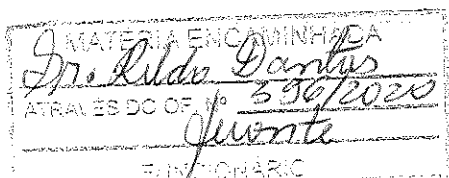 MATÉRIA ENCAMINHADA
Sr. Rildo Dantas
ATRAVÉS DO OF. Nº 396/2020
FUNCIONÁRIO